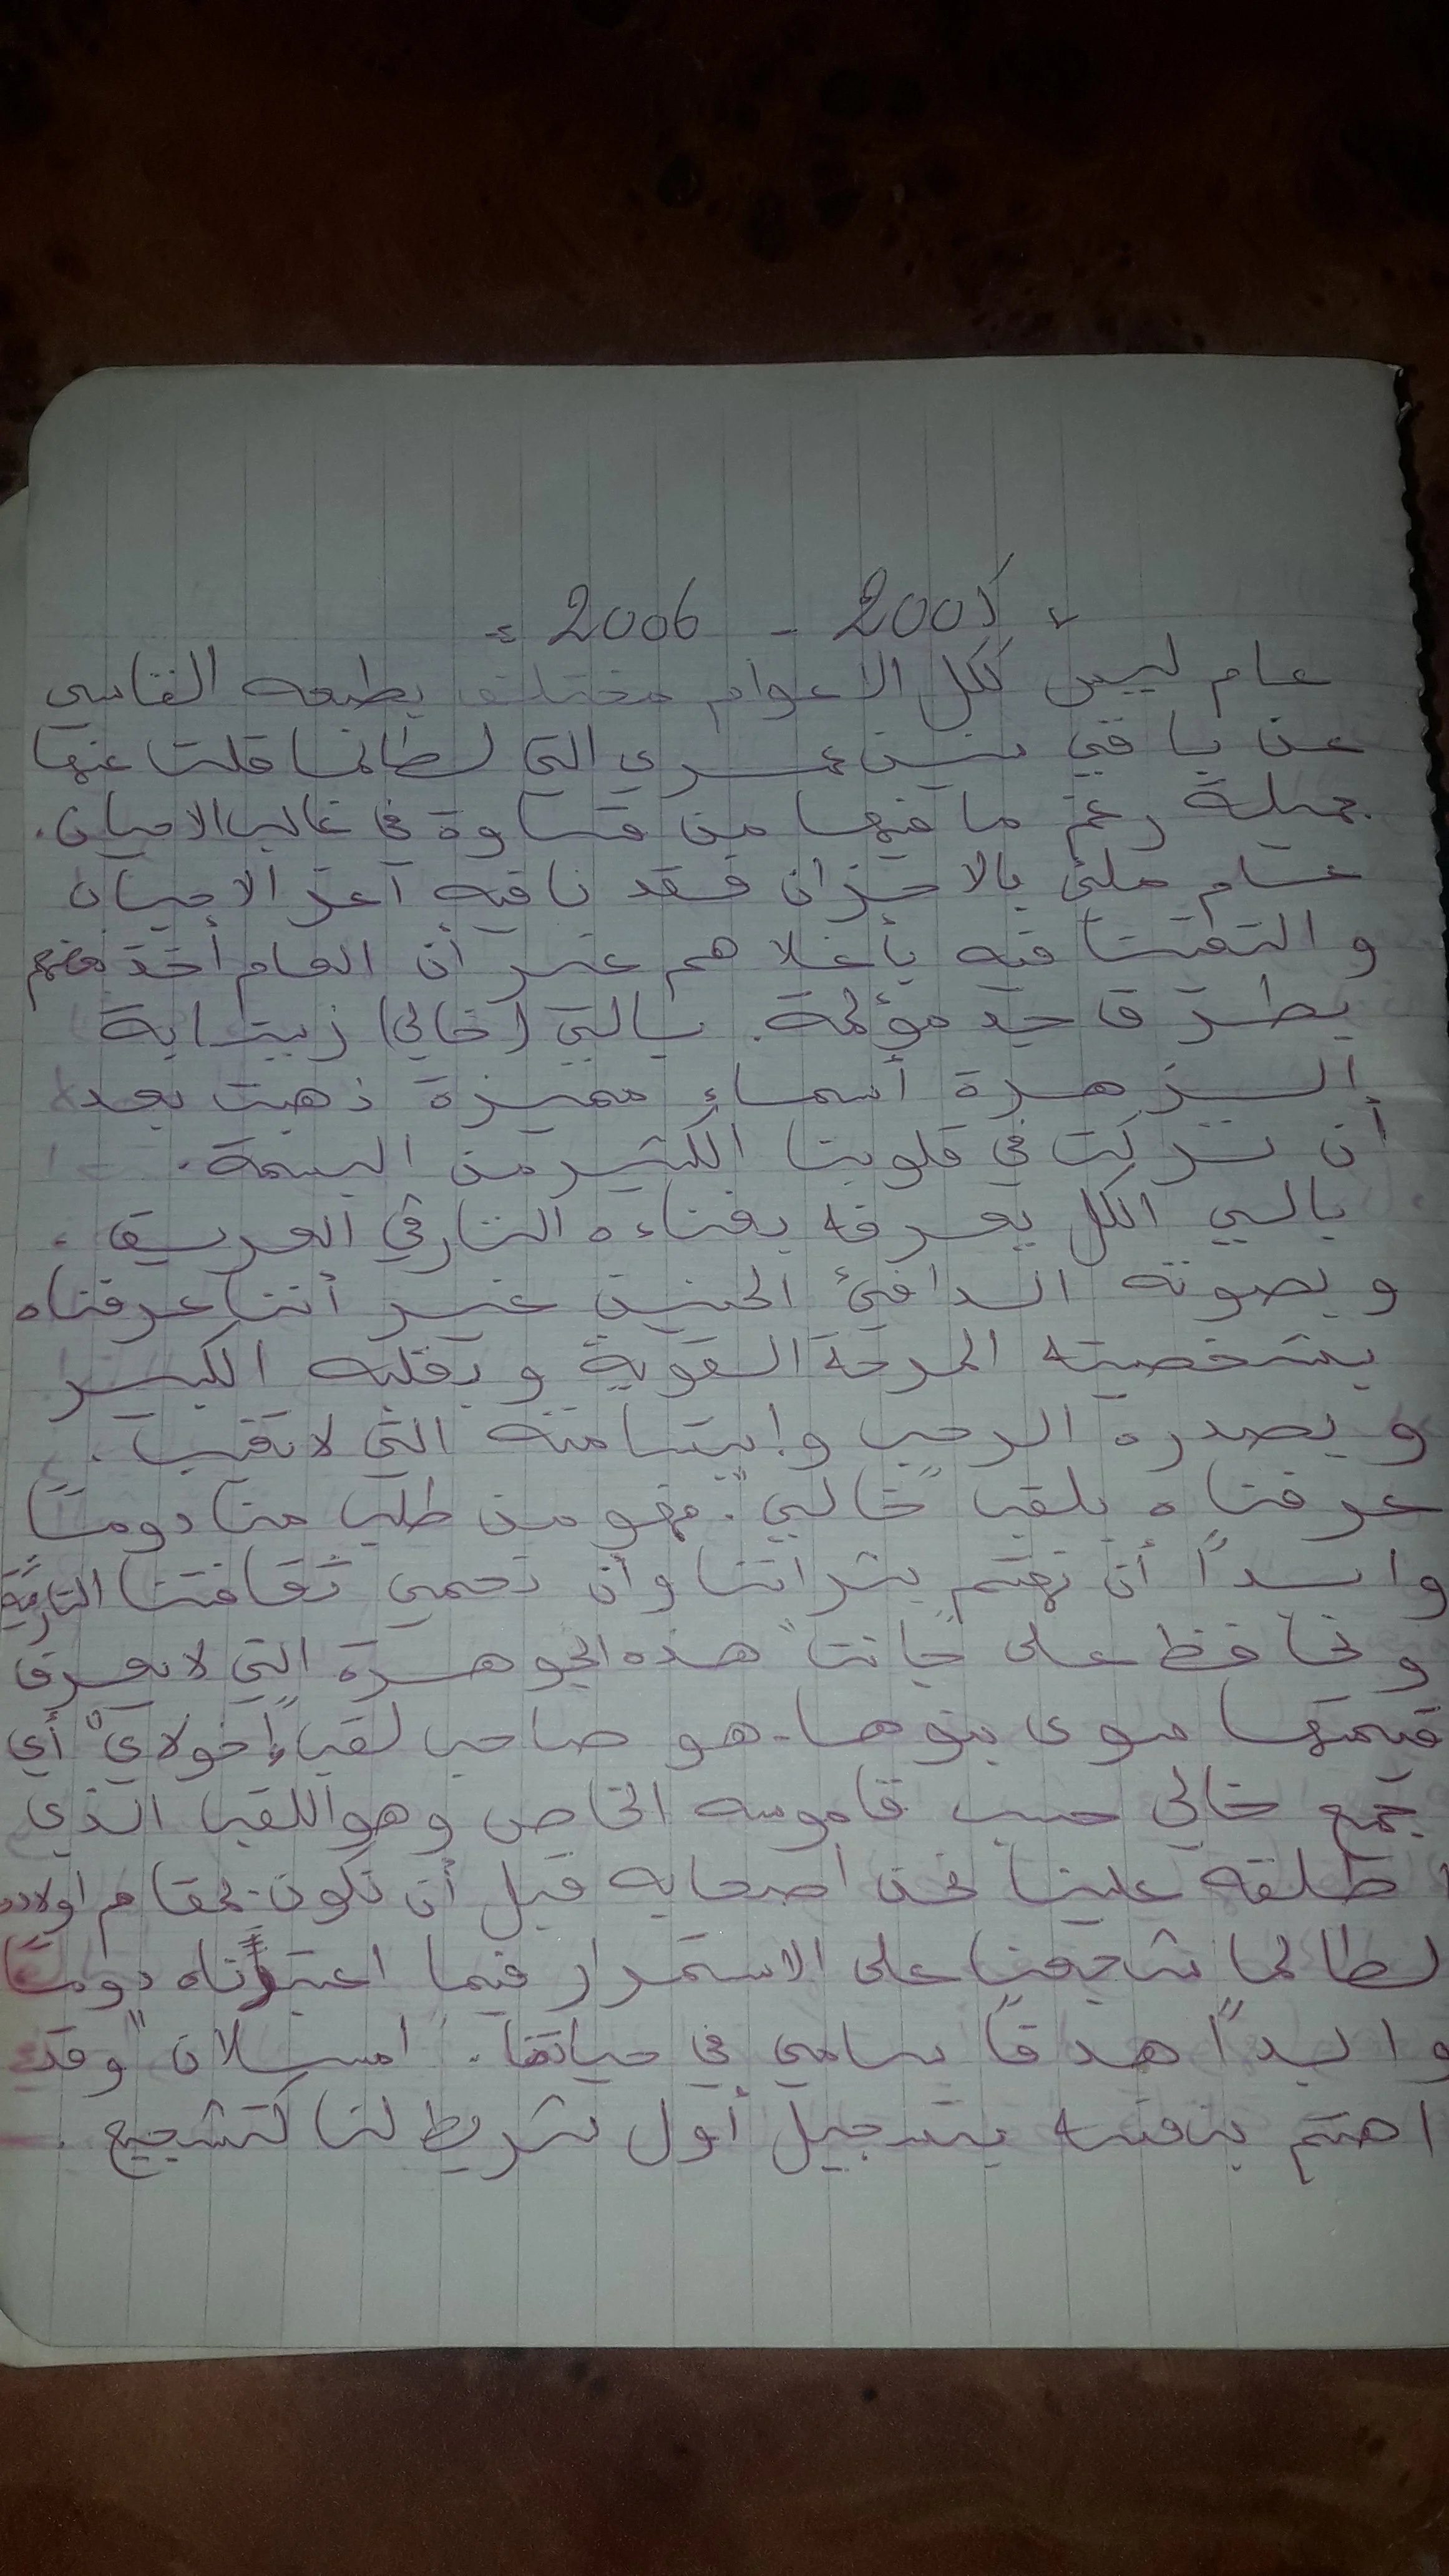 « 2005 - 2006 »
عام ليس ككل الاعوام مختلف بطبعه القاسي
عن باقي سنين عمري التي لطالما قلت عنها
جميلة رغم ما فيها من قساوة في غالب الاحيان.
عام ملئ بالاحزان فقد نا فيه أعز الاحباب
والتقينا فيه بأغلاهم غير أن العام أخذ بعضهم
بطرقا جد مؤلمة. بالي (خالي)
الزهرة أسماء مميزة ذهبت بعد
أن تركت في قلوبنا الكثير من البسمة.
بالي الكل يعرفه بغناءه التارقي العريق،
وبصوته الدافئ الحنين غير أننا عرفناه
بشخصيته المرحة القوية وبقلبه الكبير
وبصدره الرحب وابتسامته التي لاتغيب.
عرفناه بلقب "خالي". فهو من طلب منا دوما
وابداً أن نهتم بثراتنا وأن نحمي ثقافتنا التارقية
ونحافظ على "جانت" هذه الجوهرة التي لا يعرف
قيمتها سوى بنوها. هو صاحب لقب "إخولاي" أي
جمع خالي حسب قاموسه الخاص وهو اللقب الذي
اطلقه علينا نحن اصحابه قبل أن نكون بمقام اولاده
لطالما شجعنا على الاستمرار فيما اعتبرناه دوما
وابداً هدفاً سامي في حياتنا. "امسلان" وقد
اهتم بنفسه بتسجيل أول شريط لنا كتشجيع.